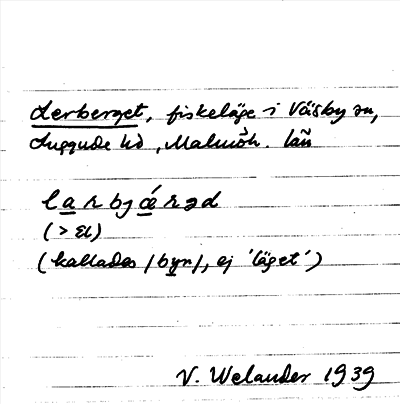 Lerberget, fiskeläge i Väsby sn,
Luggude hd, Malmöh. län
larbjǽrəd
(> ɛt)
(kallades /byn/, ej 'läget')
V. Welander 1939